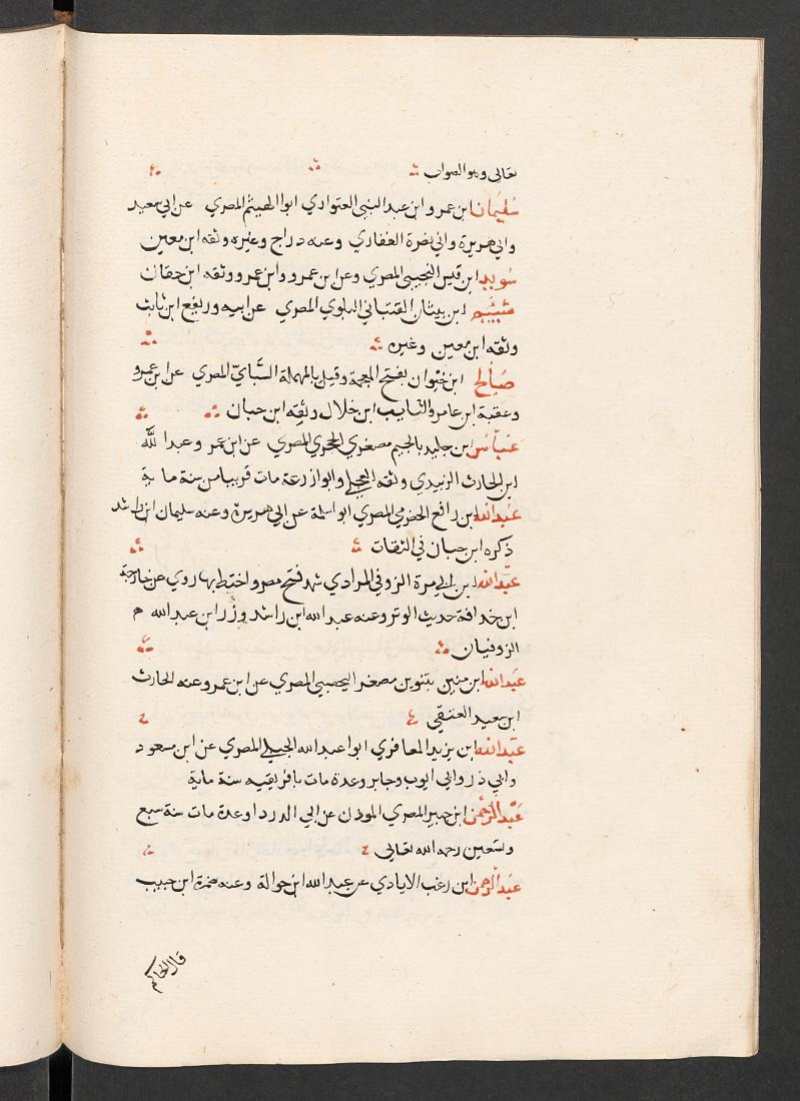 تعالى وهو الصواب
سليمان ابن عمرو ابن عبد النبي العتواري ابو الهيثم المصري عن ابي سعيد
وابي هريرة وابي نضرة الغفاري وعنه دراج وغيره وثقه ابن معين
سويد ابن قيس التجيبي المصري وعن ابن عمرو وابن عمرو وثقه ابن حقان
شييم ابن بيثان القتباني البلوي المصري عن ابيه ورويفع ابن ثابت
وثقه ابن معين وغيره
صالح ابن خيوان بفتح المعجمة وقيل بالمهملة السبايّ المصري عن ابن عمرو
وعقبة ابن عامر والسايب ابن خلال وثقه ابن حبان
عباس ابن جليد بالجيم مصغري الحجري المصري عن ابن عمر وعبد الله
ابن الحارث الزبيدي وثقه العجلي وابو ازرعة مات قريبا من سنة ماية
عبد الله ابن رافع الحضرمي المصري ابو اسلمة عن ابي هريرة وعنه سليمان ابن راشد
ذكره ابن حبان في الثقات
عبد الله ابن ابي مرة الزوفي المرادي شهد فتح مصر واختط بها روي عن خارجة
ابن خدافة حديث الوتر وعنه عبد الله ابن راشد وزر ابن عبد الله م
الزوفيان
عبد الله ابن منين بتنوين مصغر اليحصبي المصري عن ابن عمرو وعنه الحارث
ابن سعيد العتقي
عبد الله ابن يزيد المعافري ابو اعبد الله الجبلي المصري عن ابن مسعود
وابي ذر وابي ايوب وجابر وعدة مات بافريقيه سنة ماية
عبد الرحمن ابن جبير المصري الموذن عن ابي الدردا وعدة مات سنة سبع
وتسعين رحمه الله تعالى
عبد الرحمن ابن زغب الايادي عن عبد الله ابن حوالة وعنه ضمرة ابن حبيب
قال الحاكم